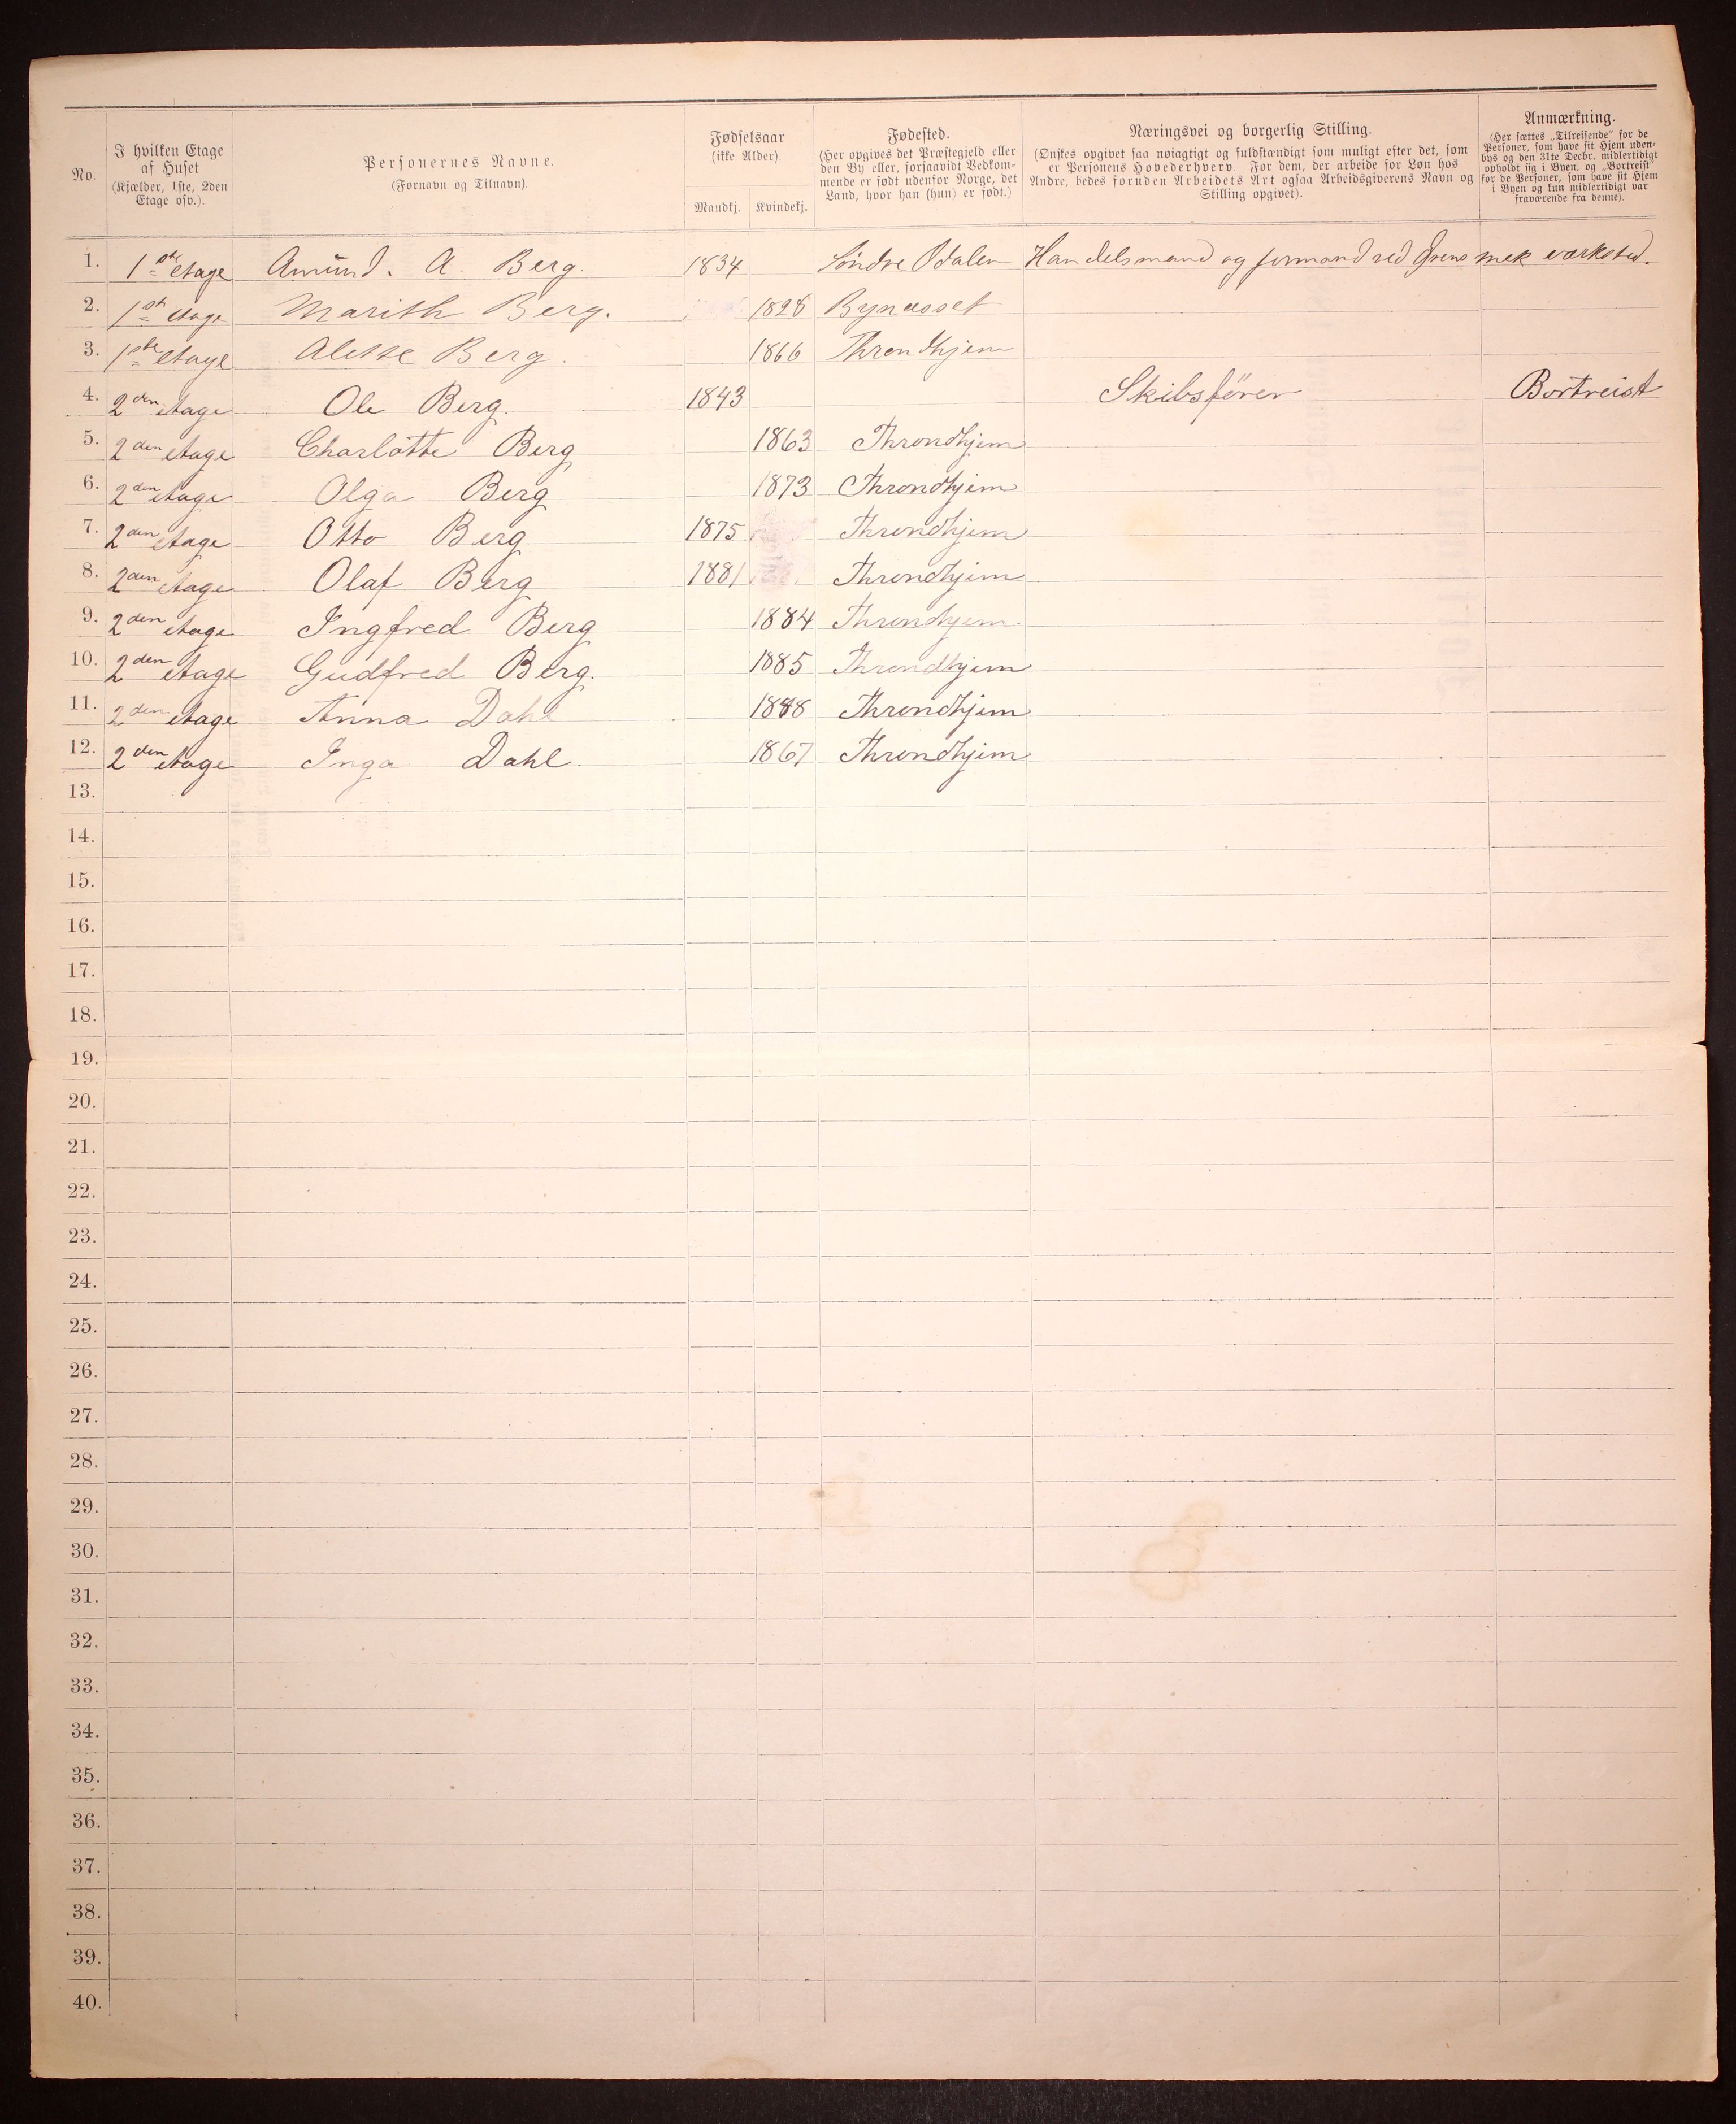 No.
I hvilken Etage
af Huset
(Kjælder, 1ste, 2den
Etage osv.).
Personernes Navne.
(Fornavn og Tilnavn).
Fødselsaar
(ikke Alder).
Mandkj. Kvindekj.
Fødested.
(Her opgives det Præstegjeld eller
den By eller, forsaavidt Vedkom-
mende er født udenfor Norge, det
Land, hvor han (hun) er født.)
Næringsvei og borgerlig Stilling.
(Ønskes opgivet saa nøiagtigt og fuldstændigt som muligt efter det, som
er Personens Hovederhverv. For dem, der arbeide for Løn hos
Andre, bedes foruden Arbeidets Art ogsaa Arbeidsgiverens Navn og
Stilling opgivet).
Anmærkning.
(Her sættes „Tilreisende" for de
Personer, som have sit Hjem uden-
bys og den 31te Decbr. midlertidigt
opholdt sig i Byen, og „Bortreist"
for de Personer, som have sit Hjem
i Byen og kun midlertidigt var
fraværende fra denne).
1. 1ste etage Amund. A. Berg. 1834 Söndre Odalen Handelsmand og formand ved Ørens mek værksted.
2. 1ste etage Marith Berg. 1828 Bynæsset
3. 1ste etage Alette Berg. 1866 Throndhjem
4. 2den etage Ole Berg. 1843 Skibsförer Bortreist
5. 2den etage Charlotte Berg 1863 Throndhjem
6. 2den etage Olga Berg 1873 Throndhjem
7. 2den etage Otto Berg 1875 Throndhjem
8. 2den etage Olaf Berg 1881 Throndhjem
9. 2den etage Ingfred Berg 1884 Throndhjem
10. 2den etage Gudfred Berg. 1885 Throndhjem
11. 2den etage Anna Dahl 1888 Throndhjem
12. 2den etage Inga Dahl. 1867 Throndhjem
13.
14.
15.
16.
17.
18.
19.
20.
21.
22.
23.
24.
25.
26.
27.
28.
29.
30.
31.
32.
33.
34.
35.
36.
37.
38.
39.
40.